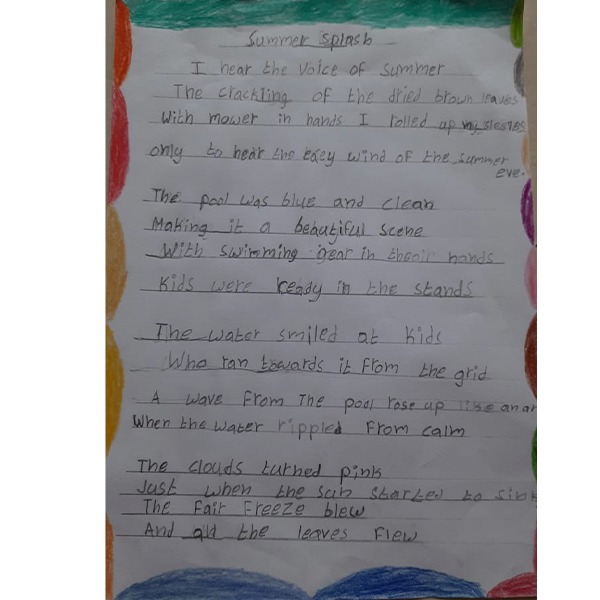 Summer Splash
I hear the voice of summer
The crackling of the dried brown leaves
With mower in hands I rolled up my sleeves
only to hear the wind of the summer
eve.
The pool was blue and clean
Making it a beautiful scene
With swimming gear in their hands
Kids were ready in the stands
The water smiled at kids
Who ran towards it from the grid
A wave from The pool rose up like an
When the water rippled from calm
The clouds turned pink
Just when the sun started to sink
The Fair Freeze blew
And all the leaves flew